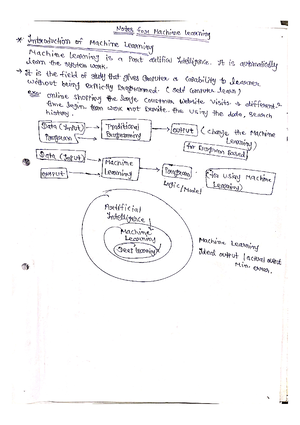 Notes for Machine Learning
* Introduction of Machine Learning
Machine Learning is a Part artifical Intelligence. It is automatically
learn the system work.
→ It is the field of study that gives Computer a Capability to learner
without being Explicitly Programmed. (Self Computer learn)
online shopping the large consumer website visits a different
time login from work not rewrite the using the data, search
history.
Data (Input) → Traditional Programming → output (change the Machine
Program Learning)
for Program Based
Data (Input) → Machine Learning → Program (for using Machine
output Logic/Model Learning)
Artificial
Intelligence
Machine
Learning
Deep learning
Machine Learning
Ideal output / actual output
Min. error.